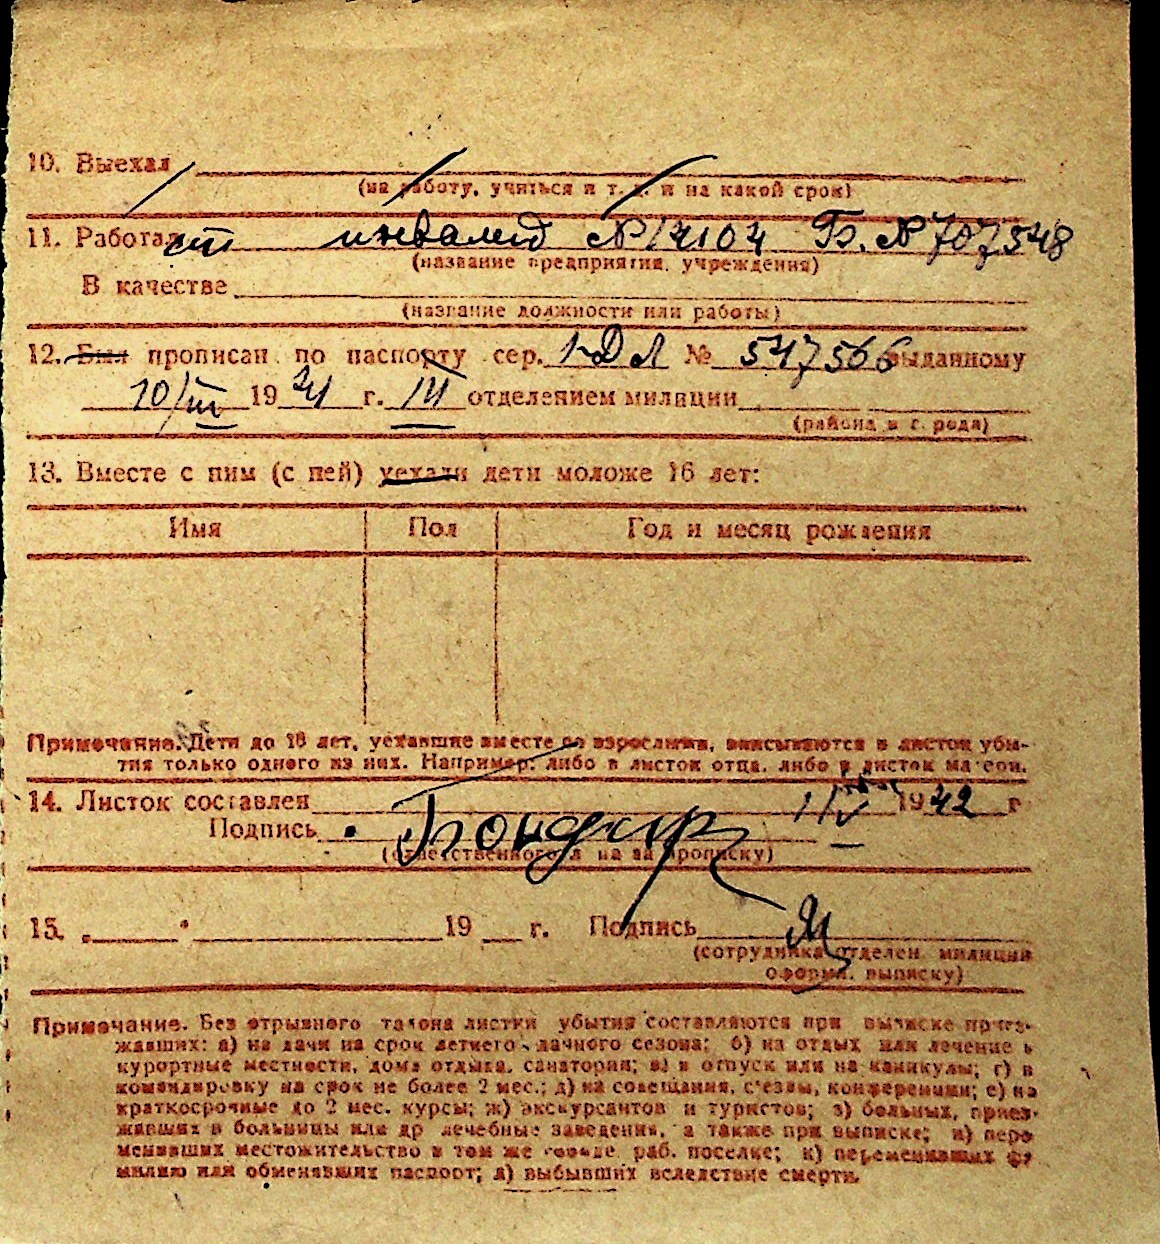 10. Выехал
(на работу, учиться и т. д. и на какой срок)
11. Работал ст инвалид № 14104 Б. № 707548
(название предприятия, учреждения)
В качестве
(название должности или работы)
12. Был прописан по паспорту сер. 1-ДЛ № 547566 выданному
10/III 19 г. III отделением милиции
(района и города)
13. Вместе с ним (с ней) уехали дети моложе 16 лет:
Имя Пол Год и месяц рождения
Примечание. Дети до 16 лет, уехавшие вместе со взрослыми, вписываются в листок убы-
тия только одного из них. Например: либо в листок отца, либо в листок матери.
14. Листок составлен 1/IV 1942 г
Подпись Бондар
(ответственного л на за прописку)
15. „ " 19 г. Подпись
(сотрудника отделен. милиции
оформ. выписку)
Примечание. Без отрывного талона листки убытия составляются при выписке приез-
жавших: а) на дачи на срок летнего дачного сезона; б) на отдых или лечение в
курортные местности, дома отдыха, санатории; в) в отпуск или на каникулы; г) в
командировку на срок не более 2 мес.; д) на совещания, с'езды, конференции; е) на
краткосрочные до 2 мес. курсы; ж) экскурсантов и туристов; з) больных, приез-
жавших в больницы или др лечебные заведения, а также при выписке; и) пере
менивших местожительство в том же городе, раб. поселке; к) переменивших фа
милию или обменявших паспорт; л) выбывших вследствие смерти.